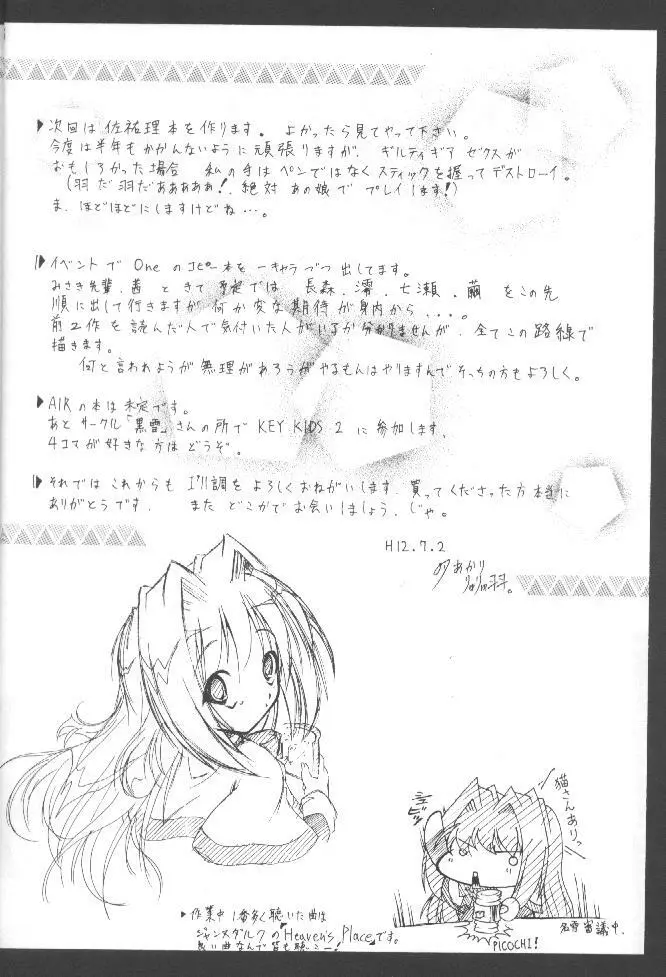 次回は佐祐理本を作ります。よかったら見てやって下さい。
今度は半年もかかんないように頑張りますが、ギルティギア ゼクスが
おもしろかった場合 私の手はペンではなくスティックを握ってデストローイ。
(羽だ羽だあああああ!絶対あの娘でプレイします!)
ま、ほどほどにしますけどね…。
イベントで Oneのコピー本を一キャラづつ出してます。
みさき先輩、茜ときて予定では、長森、澪、七瀬、繭をこの先
順に出して行きますが何か変な期待が身内から...。
前2作を読んだ人で気付いた人がいるか分かりませんが、全てこの路線で
描きます。
何と言われようが無理があろうがやるもんはやりますんでそっちの方もよろしく。
AIRの本は未定です。
あとサークル「黒雪」さんの所で KEY KIDS 2 に参加します、
4コマが好きな方はどうぞ。
それではこれからも I'll調をよろしくおねがいします、買ってくださった方本当に
ありがとうです、 また どこかでお会いしましょう、じゃ。
H12.7.2
猫さんありっ
PICOCHI!
名雪審議中.
作業中1番多く聴いた曲は
ジャンヌダルクの「Heaven's Place」です。
良い曲なんで皆も聴こー!